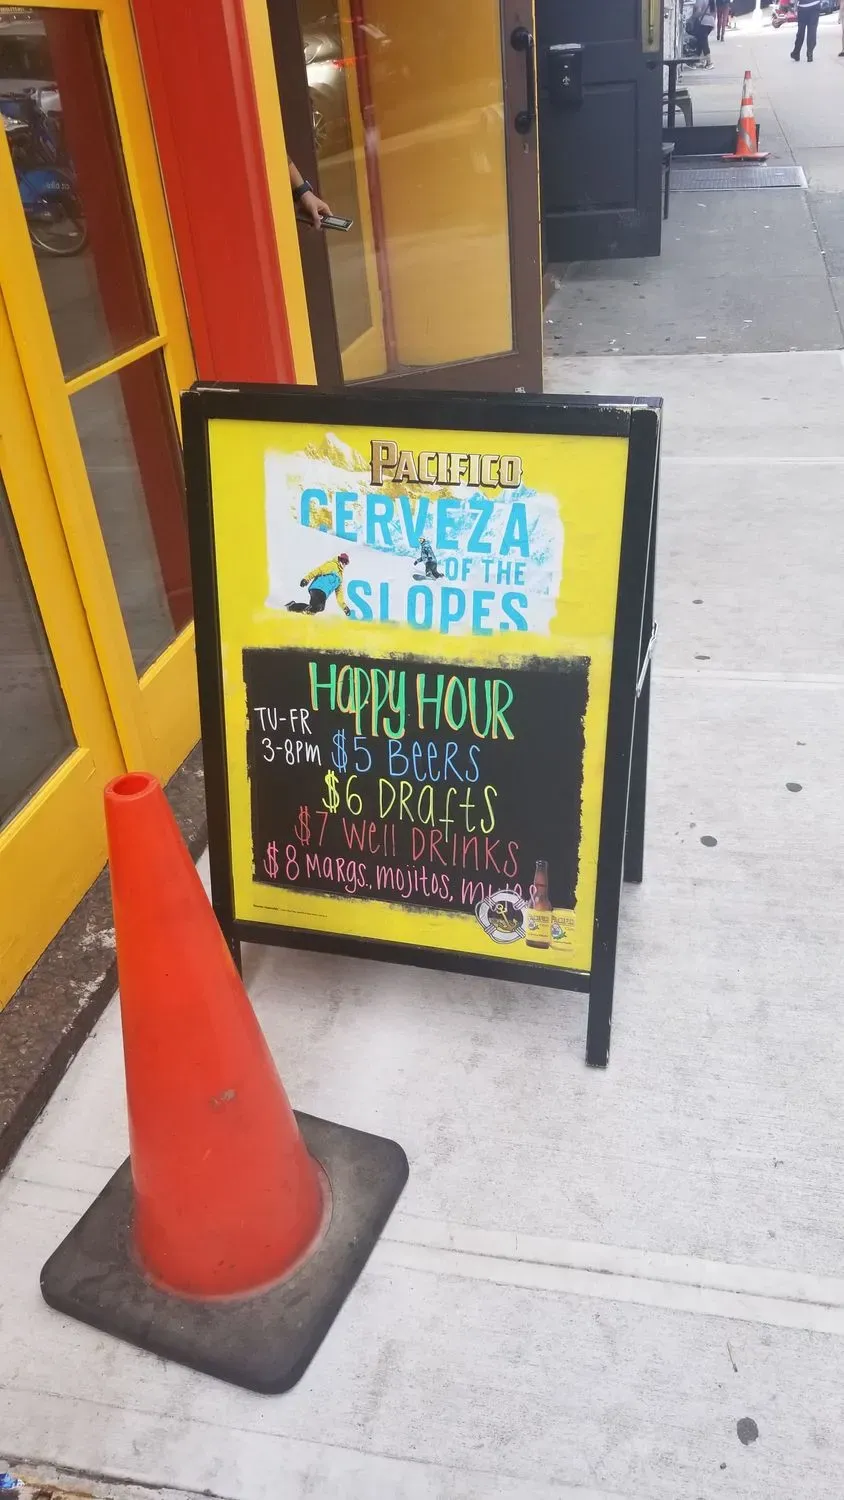 PACIFICO
CERVEZA
OF THE
SLOPES
HAPPY HOUR
TU-FR
3-8PM
$5 BEERS
$6 DRAftS
$7 Well DRINKS
$8 MARGS, mojitos,